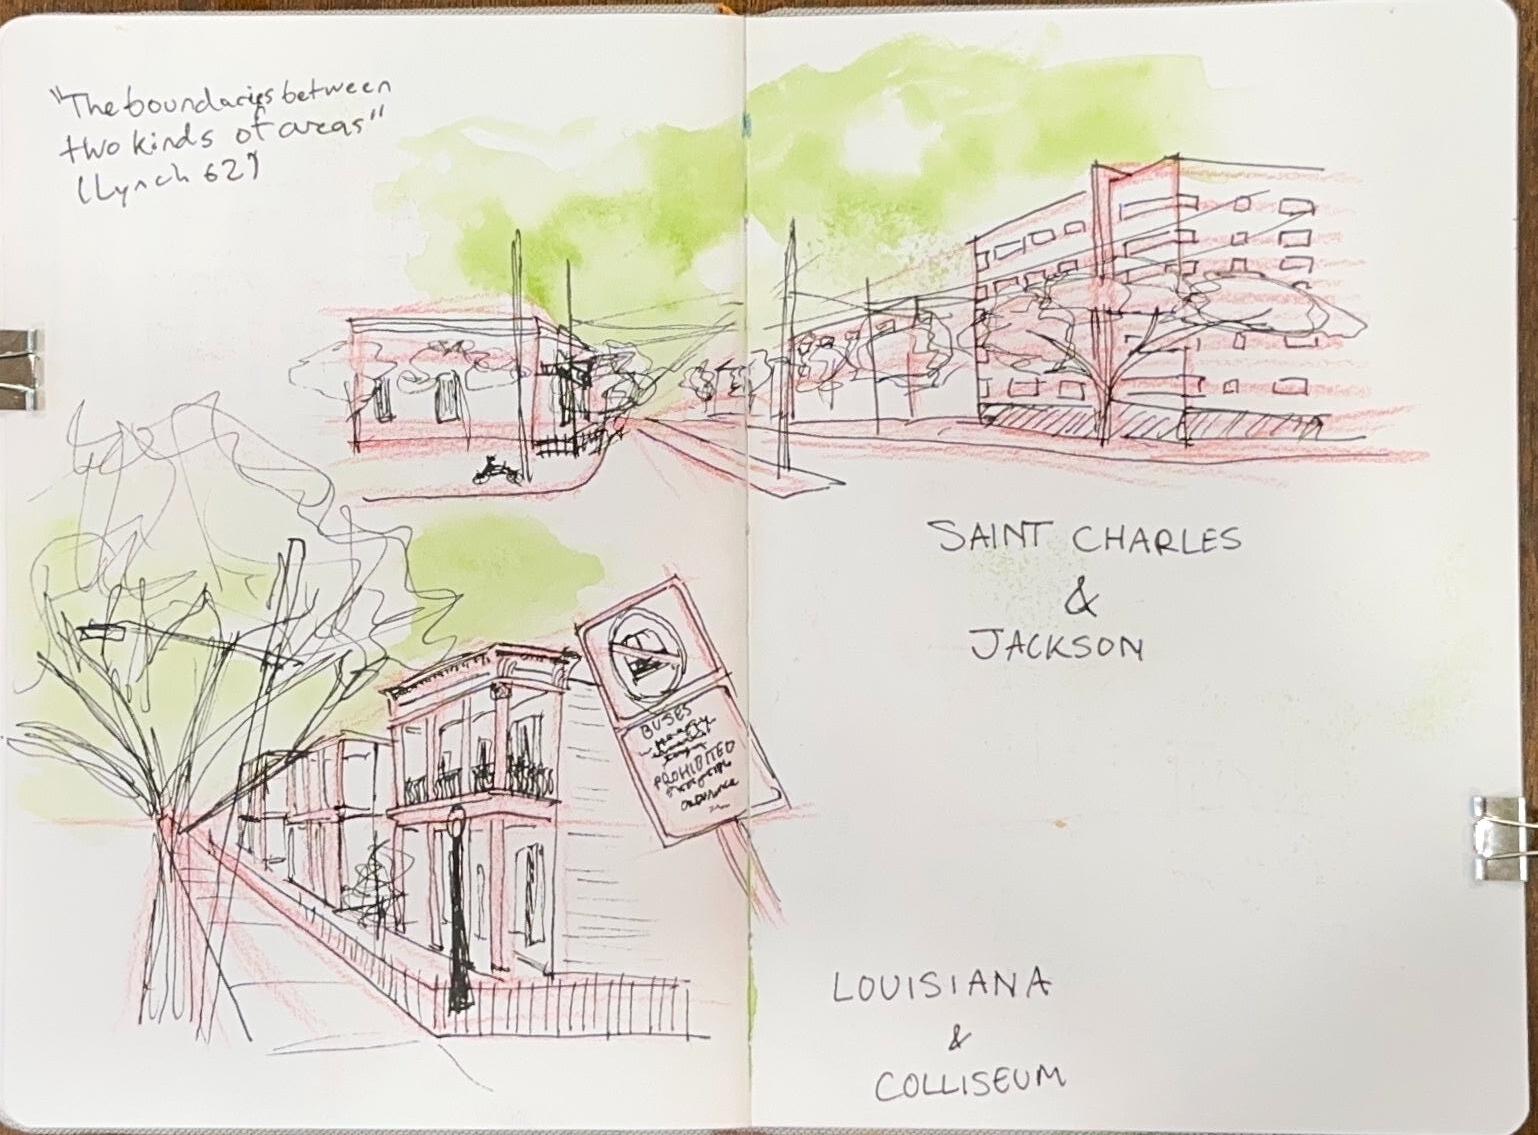 "The boundaries between
two kinds of areas"
(Lynch 62)
SAINT CHARLES
&
JACKSON
BUSES
PROHIBITED
ORDINANCE
LOUISIANA
&
COLLISEUM